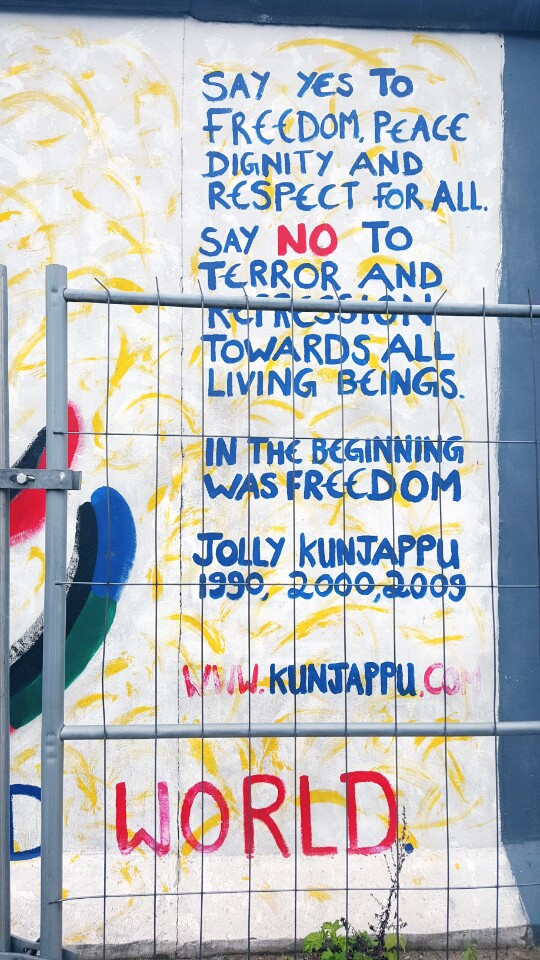 SAY YES TO
FREEDOM, PEACE
DIGNITY AND
RESPECT FOR ALL.
SAY NO TO
TERROR AND
REPRESSION
TOWARDS ALL
LIVING BEINGS.
IN THE BEGINNING
WAS FREEDOM
JOLLY KUNJAPPU
1990, 2000, 2009
WWW.KUNJAPPU.COM
WORLD.